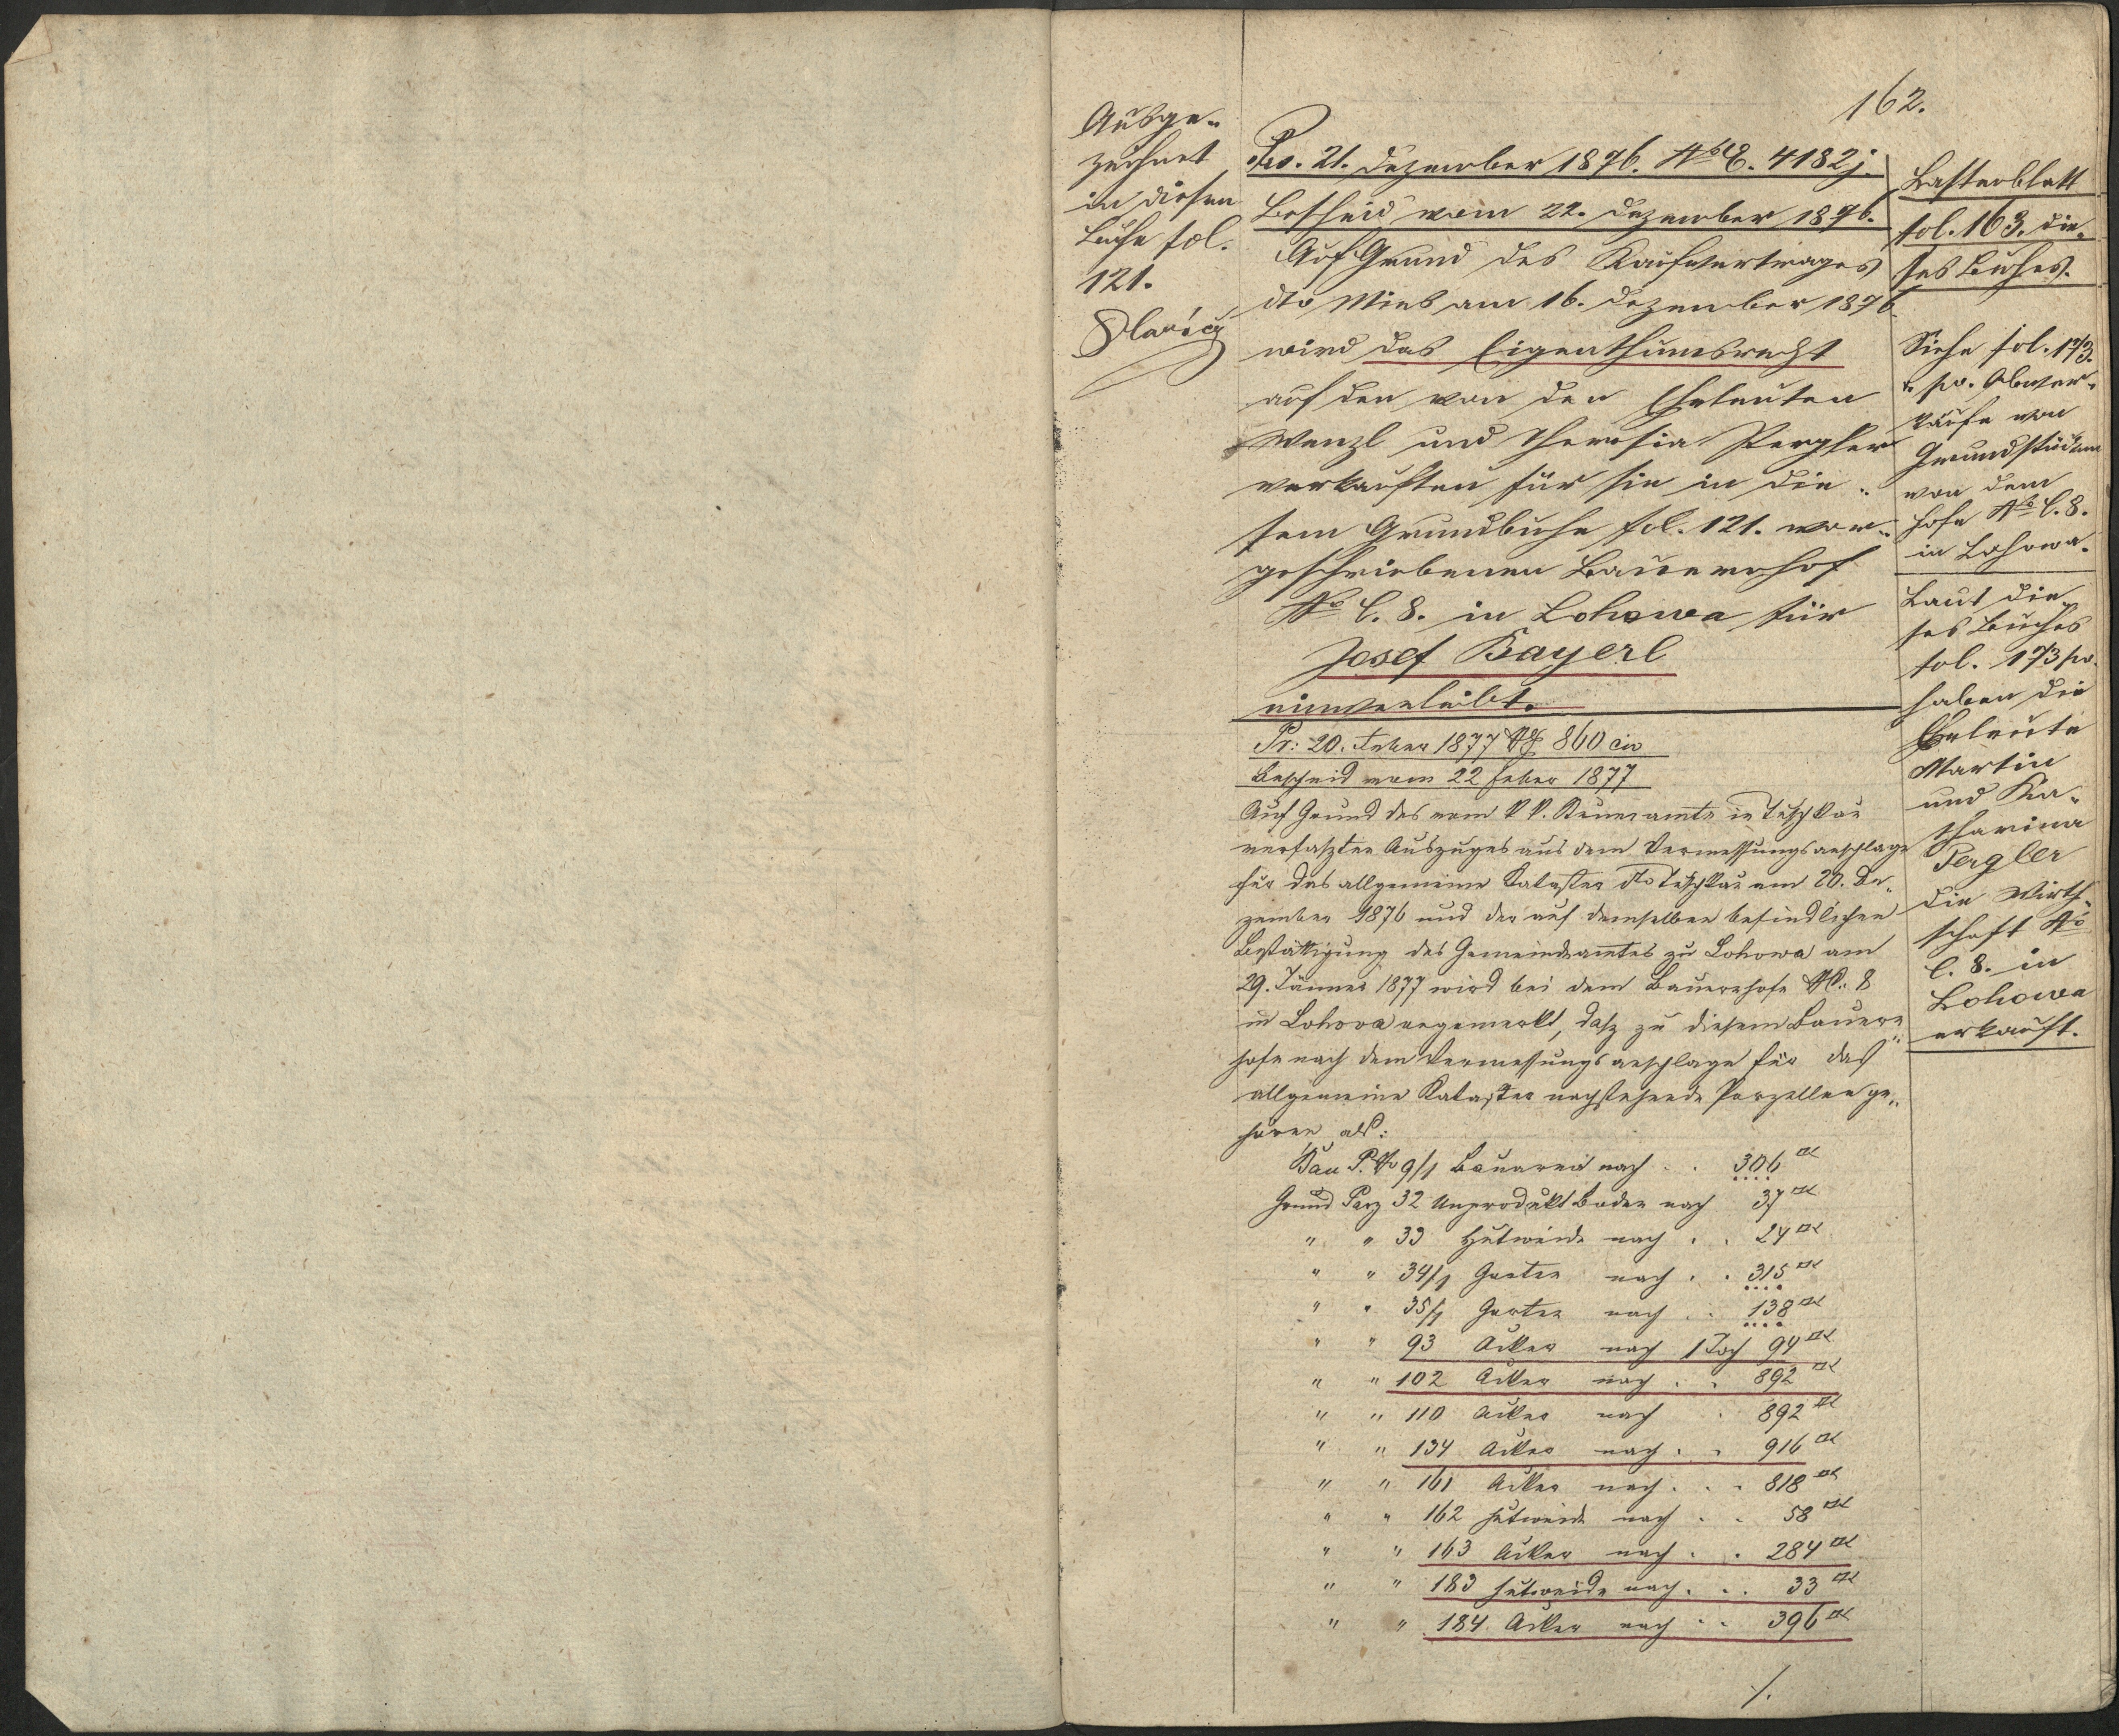 162.
Ausge-
zeichnet
in diesem
Buche fol.
121.
Prs. 21. Dezember 1876. NoE. 4182 j.
Bescheid vom 22. Dezember 1876.
Auf Grund des Kaufvertrages
dto Mies am 16. Dezember 1876
wird das Eigenthumsrecht
auf den von den Eheleuten
Wenzl und Theresia Pergler
verkauften für sie in die-
sem Grundbuche fol. 121. vor-
geschriebenen Bauernhof
No C. 8. in Lohowa für
Josef Bayerl
einverleibt.
Pr: 20. Feber 1877 NE 860 civ
Bescheid vom 22 Feber 1877
Auf Grund des vom k k. Steueramte in Tuschkau
verfaszten Auszuges aus dem Vermessungsanschlage
für das allgemeine Kataster dto Tuschkau am 20. De-
zember 1876 und der auf demselben befindlichen
Bestättigung des Gemeindeamtes zu Lohowa am
29. Jänner 1877 wird bei dem Bauernhofe NC. 8
in Lohova angemerkt, dasz zu diesem Bauern
hofe nach dem Vermessungsanschlage für das
allgemeine Kataster nachstehende Parzellen ge-
hören als:
Bau P. No 9/1 Bauarea nach . . 306 □°
Grund Parz 32 Unprodukt Boden nach 37 □°
" " 33 Hutweide nach . . 24 □°
" " 34/1 Garten nach . . 315 □°
" " 35/1 Garten nach . . 138 □°
" " 93 Acker nach 1 Joch 94 □°
" " 102 Acker nach . . 892 □°
" " 110 Acker nach . 892 □°
" " 134 Acker nach . . 916 □°
" " 161 Acker nach . . . 818 □°
" " 162 Hutweide nach . . 58 □°
" " 163 Acker nach . . 284 □°
" " 183 Hutweide nach . . . 33 □°
" " 184 Acker nach . . 396 □°
/.
Lastenblatt
fol. 163. die-
ses Buches.
Siehe fol. 173.
pv. Abver-
käufe von
Grundstücken
von dem
Hofe No C. 8.
in Lohowa.
Laut die-
ses Buches
fol. 173 pv.
haben die
Eheleute
Martin
und Ka-
tharina
Pergler
die Wirth-
schaft No
C. 8. in
Lohowa
erkauft.